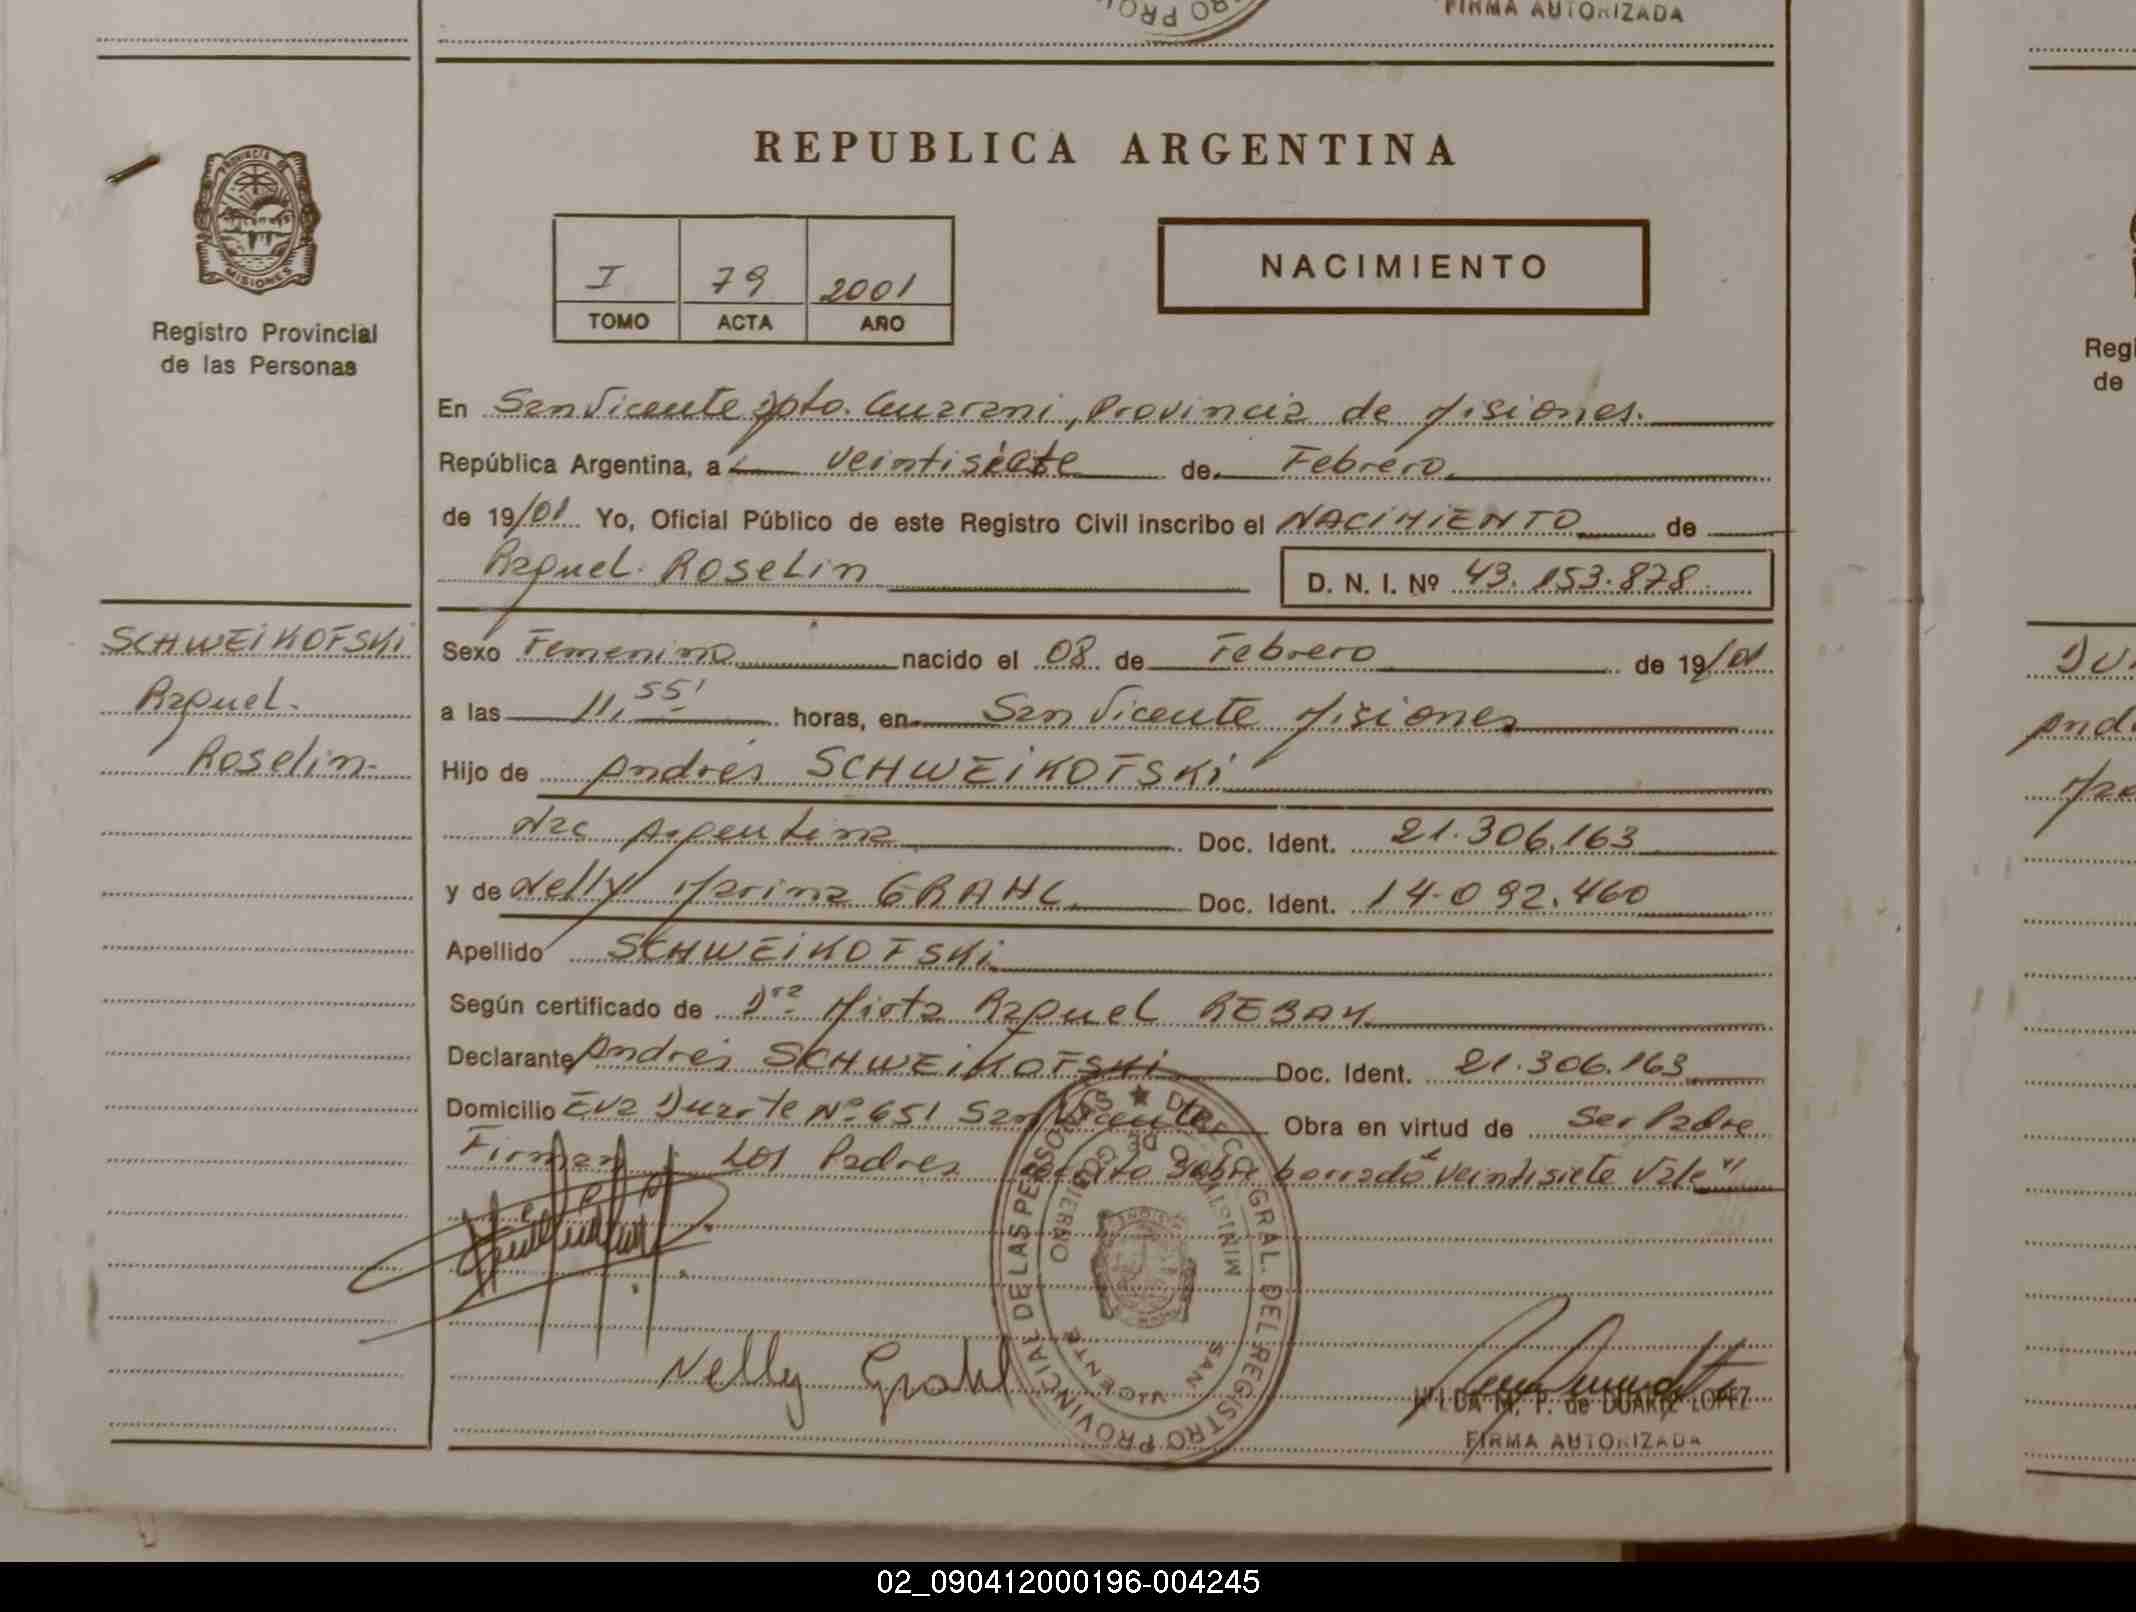 FIRMA AUTORIZADA
REPUBLICA ARGENTINA
PROVINCIA DE
MISIONES
Registro Provincial
de las Personas
I 79 2001
TOMO ACTA AÑO
NACIMIENTO
En San Vicente Dpto. Guarani, Provincia de Misiones.
República Argentina, a veintisiete de Febrero
de 19/01 Yo, Oficial Público de este Registro Civil inscribo el NACIMIENTO de
Raquel Roselin D. N. I. Nº 43.153.878
SCHWEIKOFSKI
Raquel
Roselin
Sexo Femenino nacido el 08 de Febrero de 19/01
a las 11,55' horas, en San Vicente Misiones
Hijo de Andrés SCHWEIKOFSKI
Nac Argentina Doc. Ident. 21.306.163
y de Nelly Marina GRAHL Doc. Ident. 14.092.460
Apellido SCHWEIKOFSKI
Según certificado de Dra Mirta Raquel REBAK
Declarante Andrés SCHWEIKOFSKI Doc. Ident. 21.306.163
Domicilio Eva Duarte Nº 651 San Vicente Obra en virtud de Ser Padre
Firman Los Padres escrito sobre borrado "veintisiete Vale"
DIRECC. GRAL. DEL REGISTRO PROVINCIAL DE LAS PERSONAS
MINISTERIO DE GOBIERNO
SAN VICENTE
Nelly Grahl
HILDA M. P. de DUARTE LOPEZ
FIRMA AUTORIZADA
02_090412000196-004245